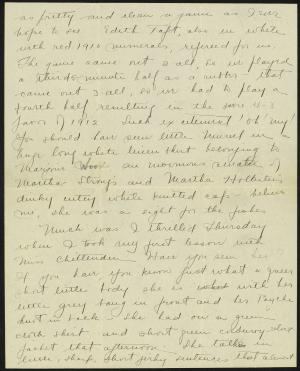 as pretty and clean a game as I ever
hope to see. Edith Taft, also in white
with red 1910 numerals, refereed for us.
The game came out 2 all, so we played
a three-minute half as a rubber - that
came out 3 all, so we had to play a
fourth half resulting in the score 4-3
favor of 1912. Such excitement! Oh my!
You should have seen little Muriel in a
huge long white linen skirt belonging to
Marjorie an enormous sweater of
Martha Strong's and Martha
dinky white knitted cap - believe
me, she was a sight for the fishes.
Much was I thrilled Thursday
when I took my first lesson with
Miss Chittenden. Have you seen her?
If you have you know just what a queer
short little body she is with her
little grey bang in front and her Psyche
knot in back. She had on a green
cloth skirt and short green corduroy
jacket that afternoon. She talks in
little, sharp, short jerky sentences that almost